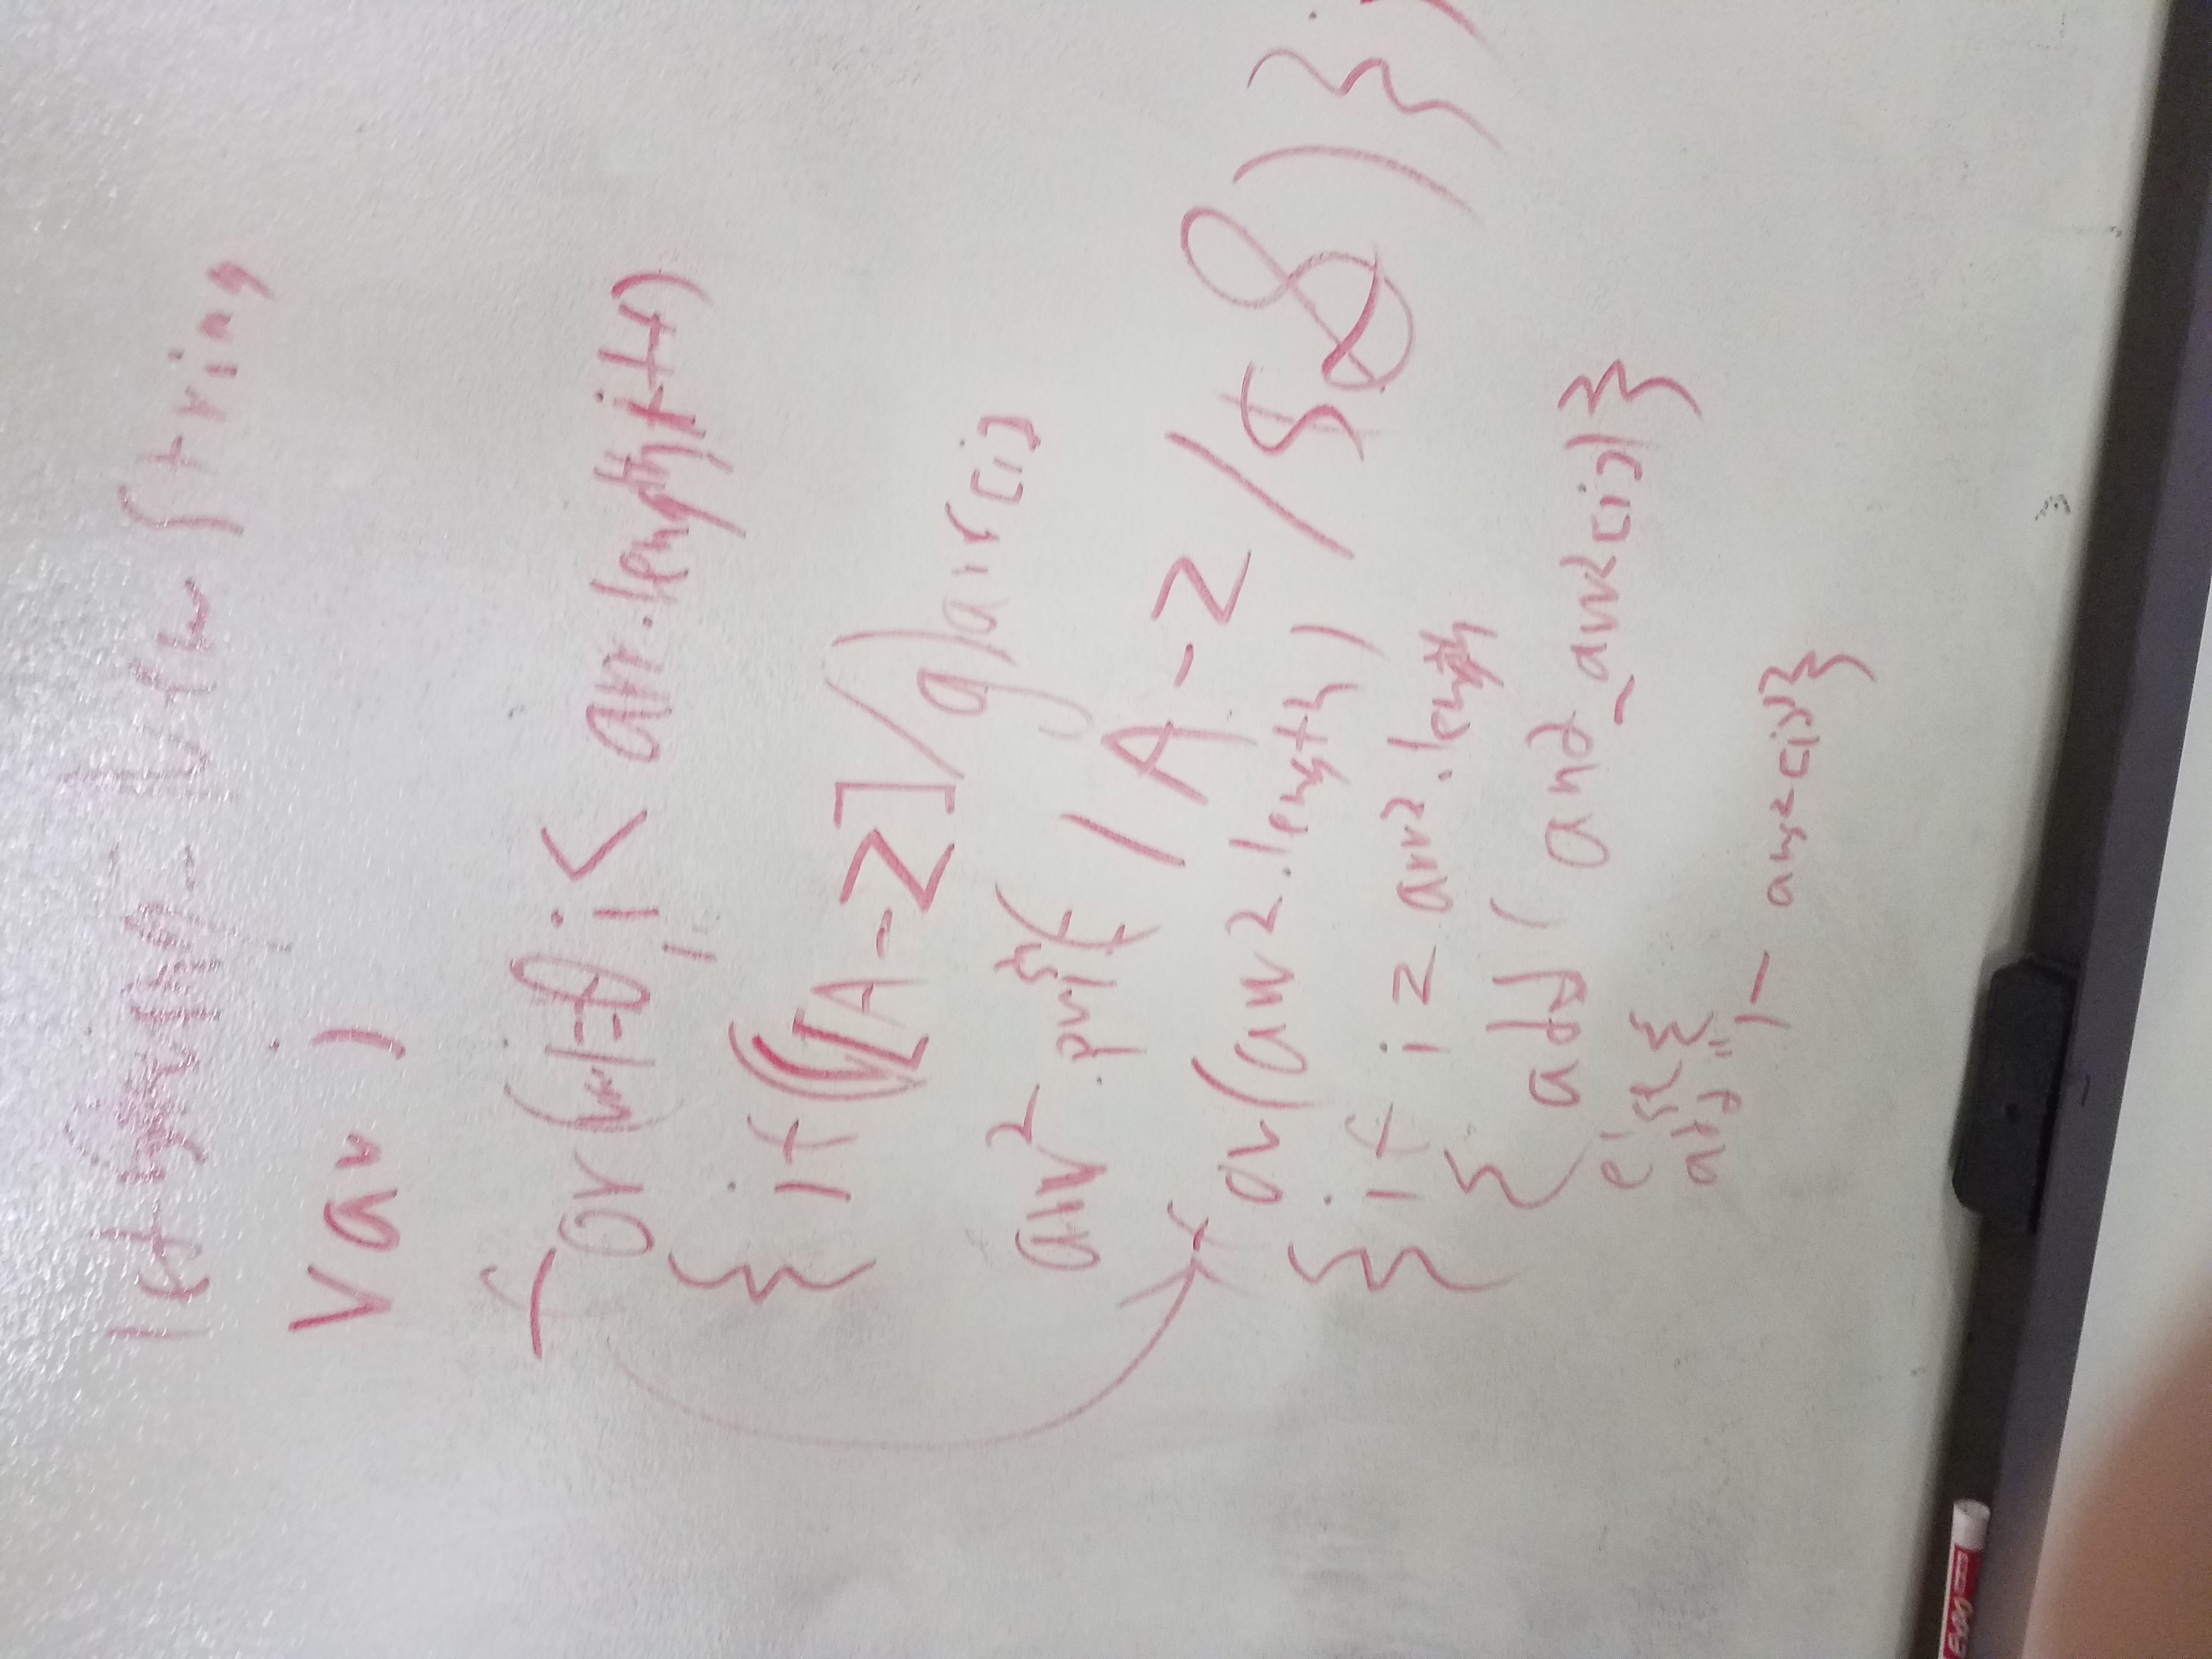 let New String
var i
for (var i=0; i < arr.length; i++)
{ if ([A-Z]/g) arr[i]
arr2.push( /A-Z/$&)};
for(arr2.length)
{ if i = arr2.length
{ add ( and_arr2[i])}
else {
add ", - arr2[i]"}
EXPO